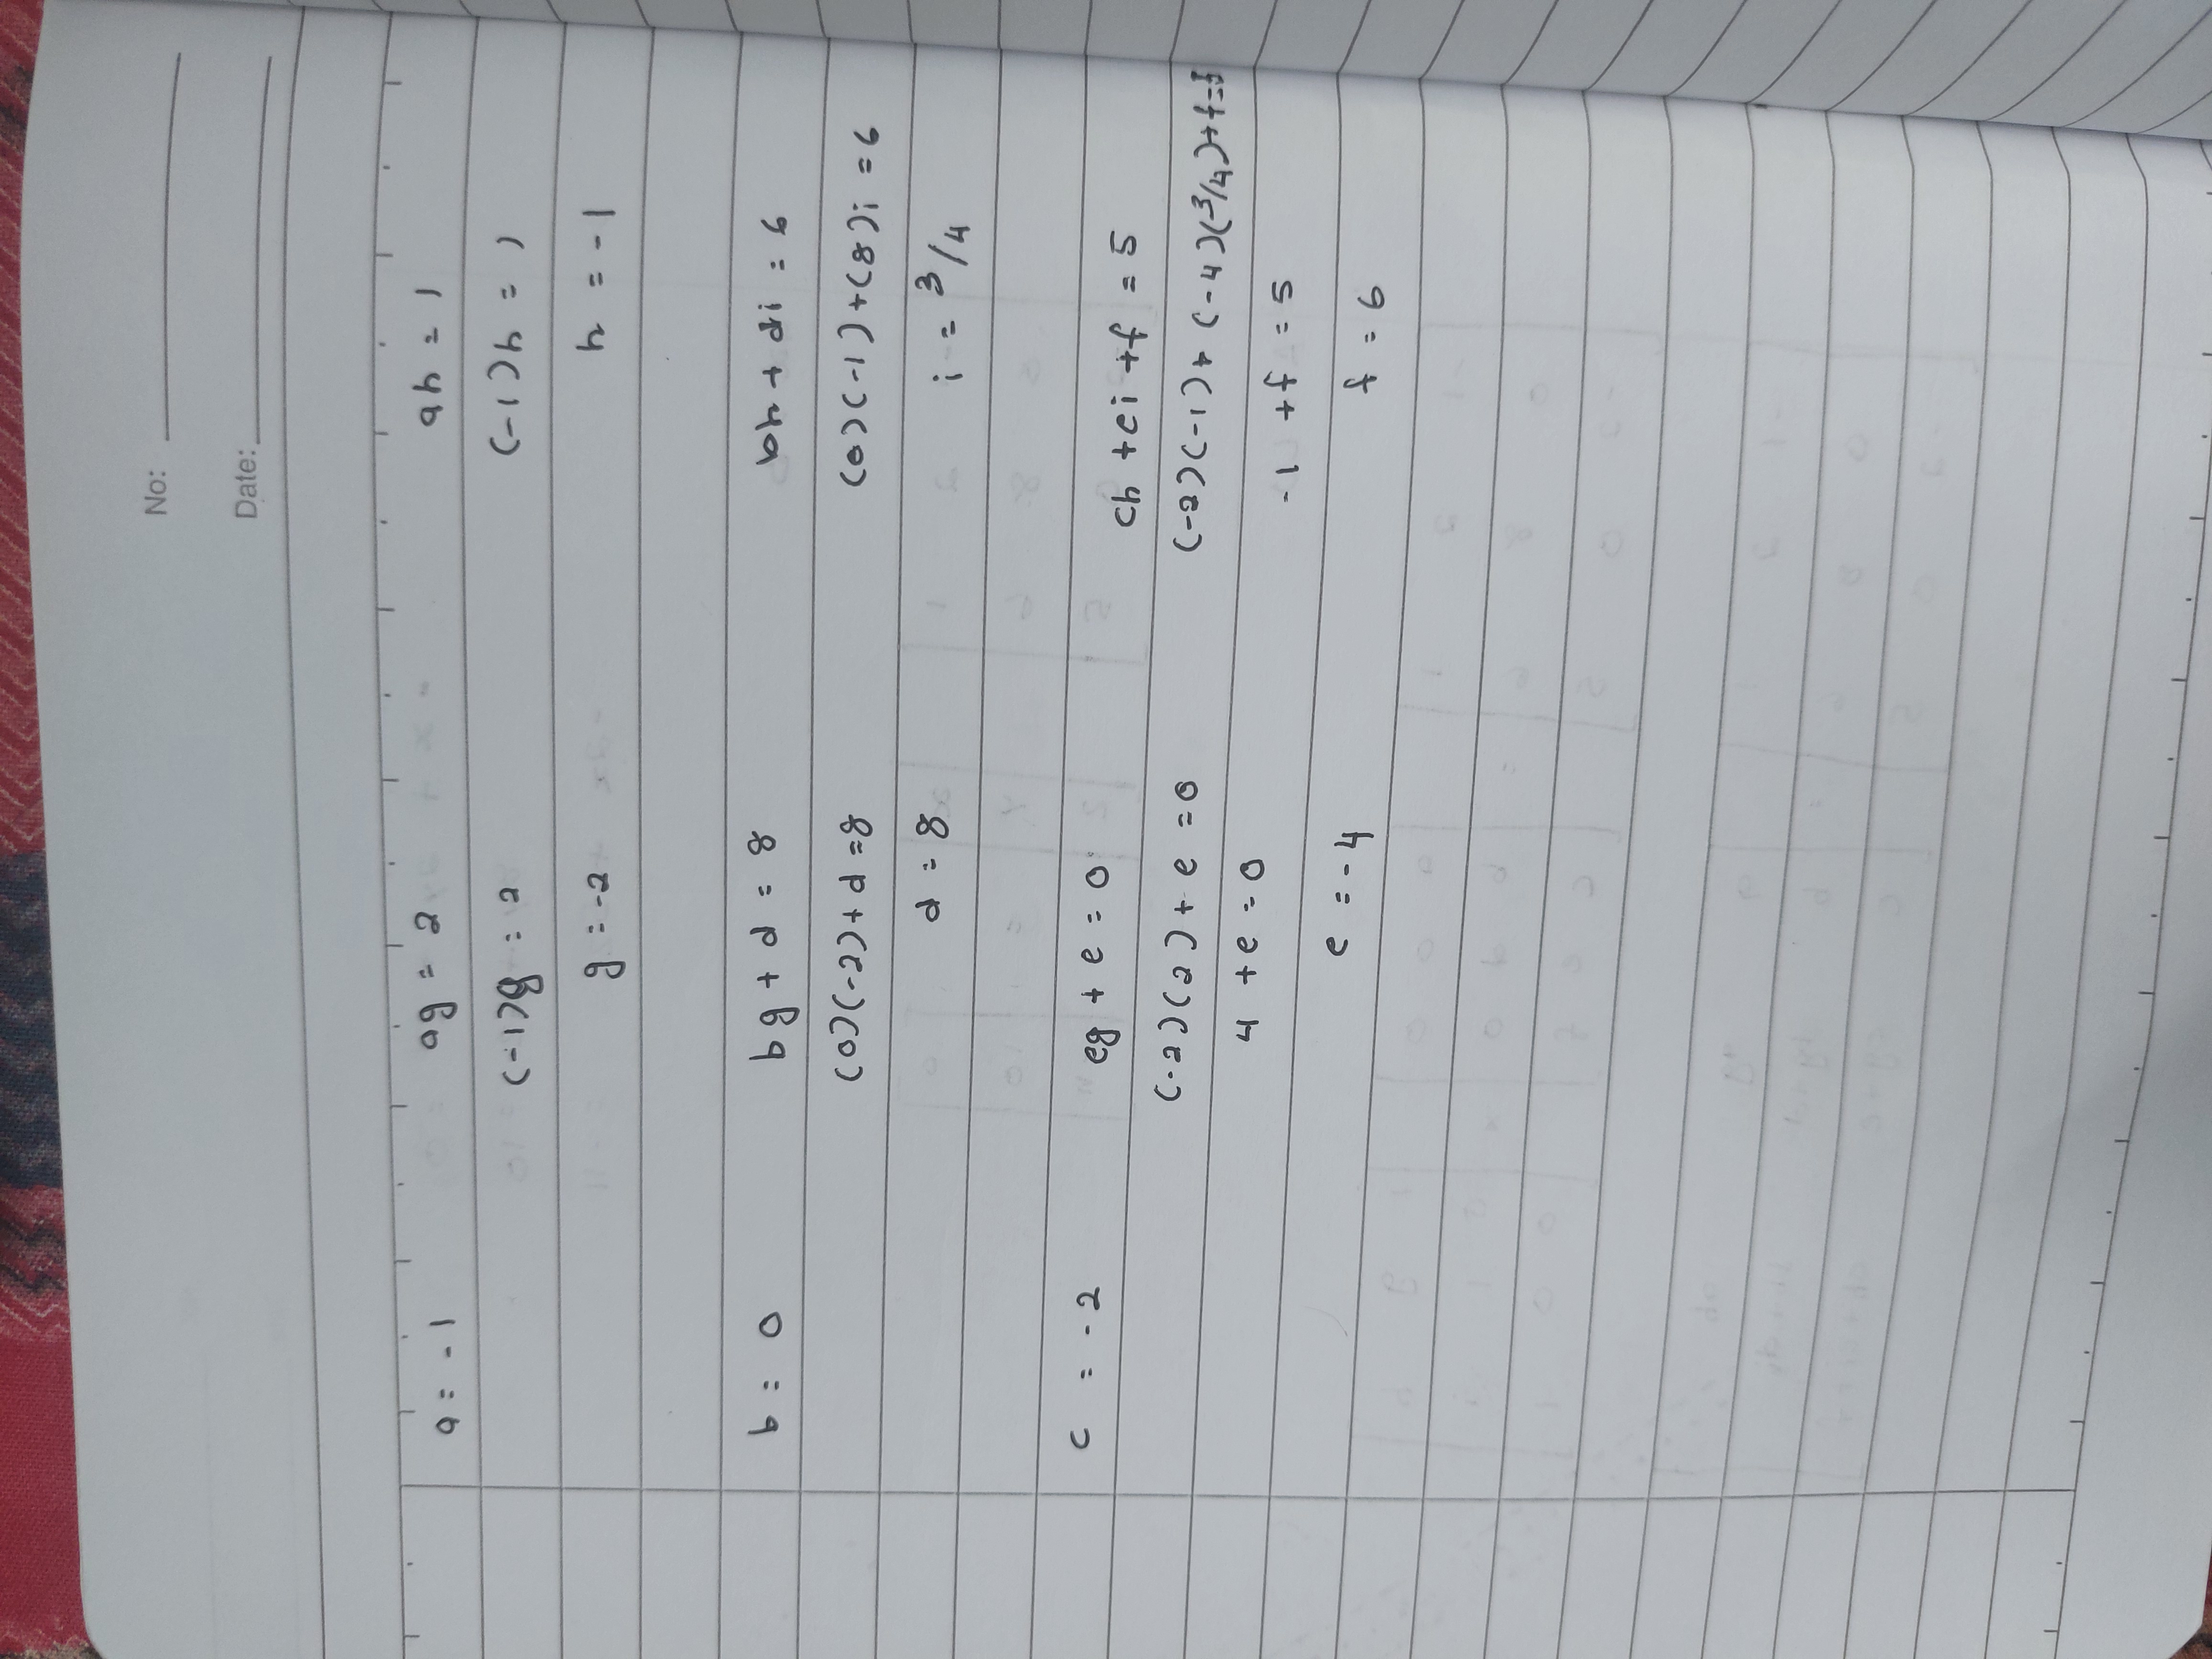 No:
Date:
a = -1 ag = 2 ah = 1
(-1)g = 2 (-1)h = 1
g = -2 h = -1
b = 0 bg + d = 8 bh + di = 6
(0)(-2) + d = 8 (0)(-1) + (8)i = 6
d = 8 i = 3/4
c = -2 cg + e = 0 ch + ei + f = 5
(-2)(2) + e = 0 (-2)(-1) + (-4)(3/4) + f = 5
4 + e = 0 -1 + f = 5
e = -4 f = 6